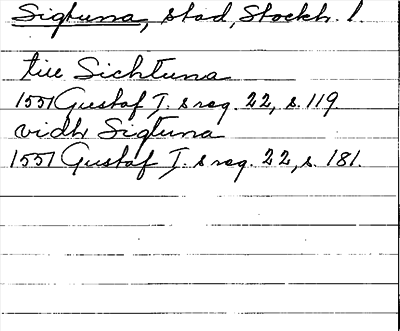 Sigtuna, stad, Stockh. l.
till Sichtuna
1551 Gustaf I:s reg. 22, s. 119.
vidh Sigtuna
1551 Gustaf I:s reg. 22, s. 181.